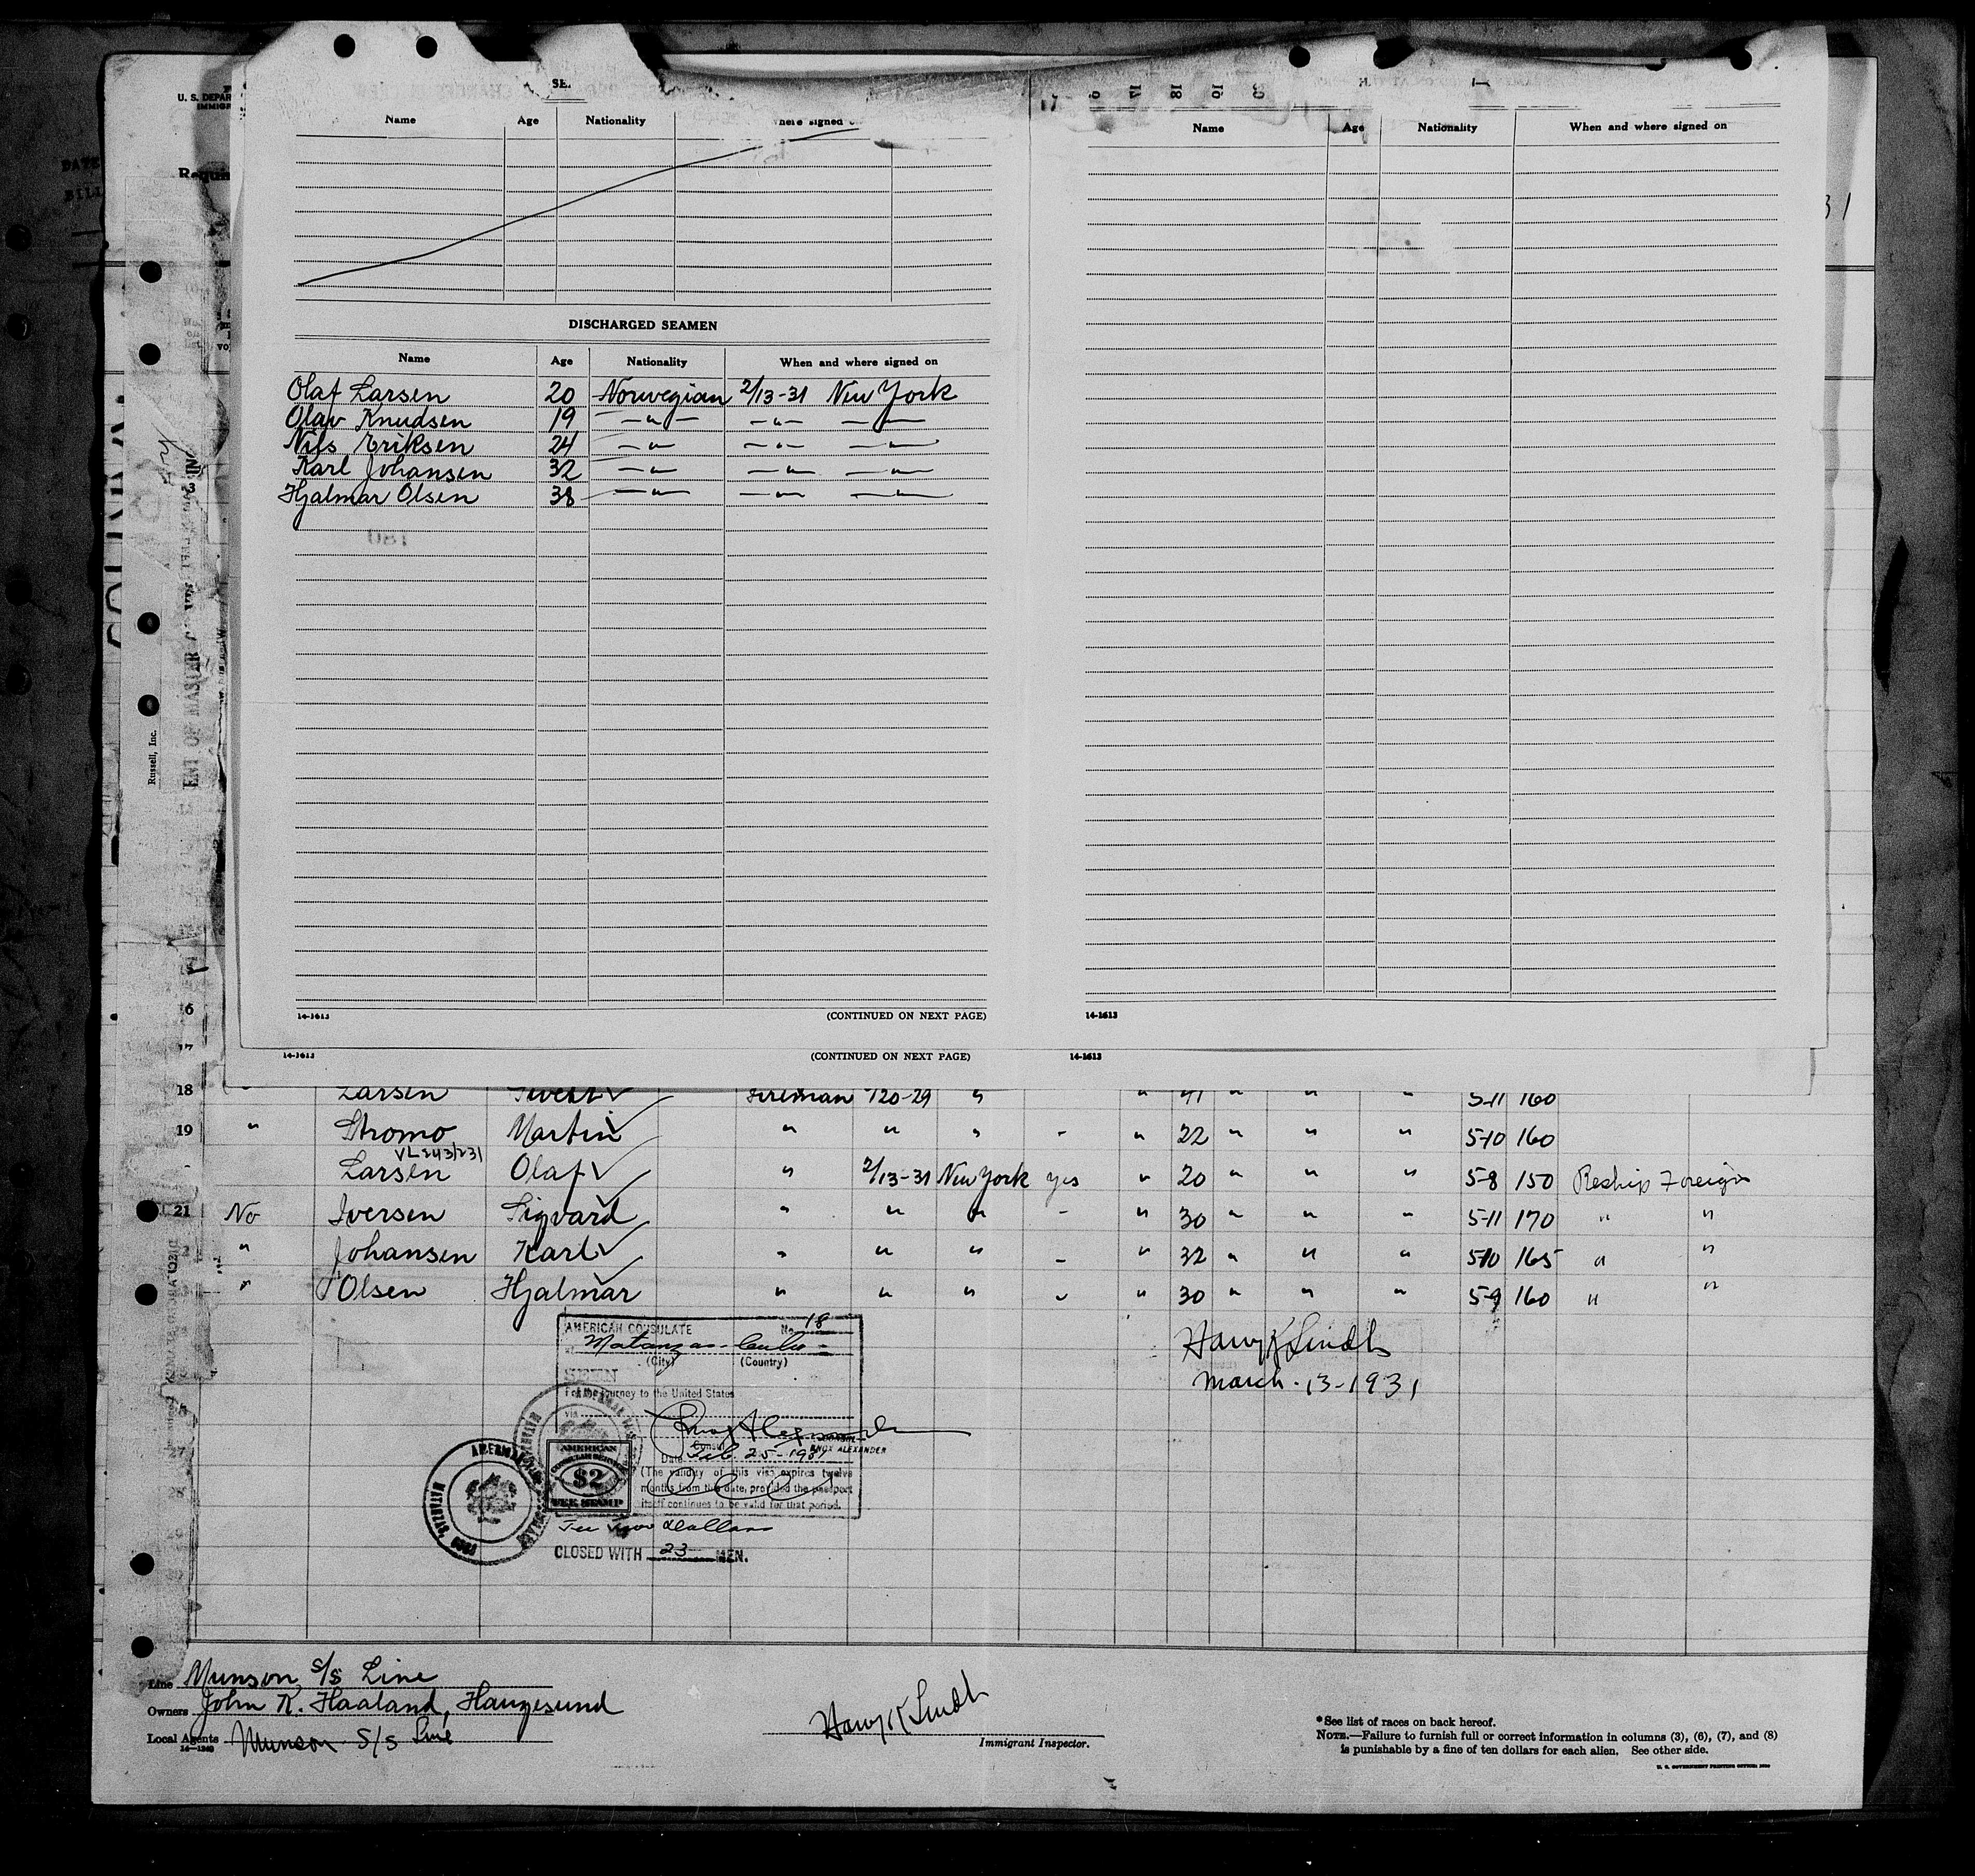 U. S. DEPAR
IMMIG
SE.
17 18 19 20
Name Age Nationality here signed
Name Age Nationality When and where signed on
DATE
BILL
31
DISCHARGED SEAMEN
Name Age Nationality When and where signed on
Olaf Larsen 20 Norwegian 2/13-31 New York
Olav Knudsen 19 —"— —"— —"—
Nils Eriksen 24 —"— —"— —"—
Karl Johansen 32 —"— —"— —"—
Hjalmar Olsen 38 —"— —"— —"—
Russell, Inc.
14-1613 (CONTINUED ON NEXT PAGE) 14-1613
14-1613 (CONTINUED ON NEXT PAGE) 14-1613
16
17
18 " Larsen fireman 20-29 " " 41 " " " 5-11 160
19 " Stromo Martin " " " - " 22 " " " 5-10 160
VL 243/231
Larsen Olaf " 2/13-31 New York yes " 20 " " " 5-8 150 Reship Foreign
21 No Iversen Sigvard " " " - " 30 " " " 5-11 170 " "
" Johansen Karl " " " - " 32 " " " 5-10 165 " "
" Olsen Hjalmar " " " - " 30 " " " 5-9 160 " "
AMERICAN CONSULATE No. 18
Matanzas - Cuba
(City) (Country)
SEEN
For the journey to the United States
via
Consul
KNOX ALEXANDER
Date Feb 25-1931
(The validity of this visa expires twelve
months from this date, provided the passport
itself continues to be valid for that period.
AMERICAN
CONSULAR SERVICE
$2
FEE STAMP
Fee Two Dollars
CLOSED WITH 23 MEN.
Harry K Lindh
March-13-1931
Line Munson S/S Line
Owners John K. Haaland, Haugesund
Local Agents Munson S/S Line
14-1240
Harry K Lindh
Immigrant Inspector.
*See list of races on back hereof.
NOTE.—Failure to furnish full or correct information in columns (3), (6), (7), and (8)
is punishable by a fine of ten dollars for each alien. See other side.
U. S. GOVERNMENT PRINTING OFFICE